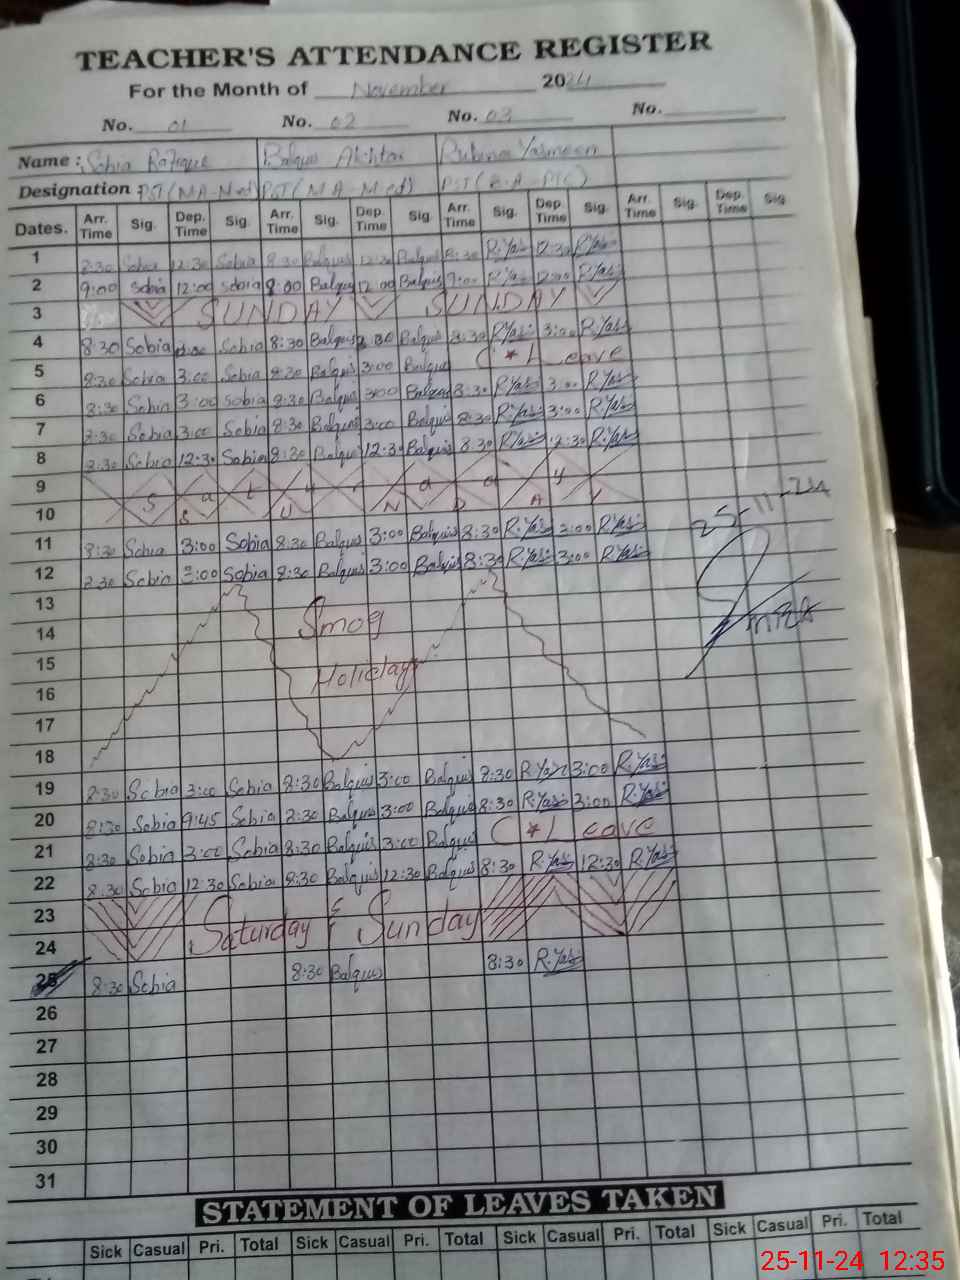 TEACHER'S ATTENDANCE REGISTER
For the Month of November 2024
No. 01 No. 02 No. 03 No.
Name : Sobia Rafique Balquis Akhtar Rubina Yasmeen
Designation : PST (M A - M ed) PST (M A - M ed) PST (B.A - PTC)
Dates. Arr. Time Sig. Dep. Time Sig. Arr. Time Sig. Dep. Time Sig. Arr. Time Sig. Dep. Time Sig. Arr. Time Sig. Dep. Time Sig.
1 8:30 Sobia 12:30 Sobia 8:30 Balquis 12:30 Balquis 8:30 R.Yas 12:30 R.Yas
2 9:00 Sobia 12:00 Sobia 8:00 Balquis 12:00 Balquis R.Yas R.Yas
3 SUNDAY SUNDAY
4 8:30 Sobia Sobia 8:30 Balquis Balquis 8:30 R.Yas 3:00 R.Yas
5 8:30 Sobia 3:00 Sobia 8:30 Balquis 3:00 Balquis C * L eave
6 8:30 Sobia 3:00 Sobia 8:30 Balquis 3:00 Balquis 8:30 R.Yas 3:00 R.Yas
7 8:30 Sobia 3:00 Sobia 8:30 Balquis 3:00 Balquis 8:30 R.Yas 3:00 R.Yas
8 8:30 Sobia 12:30 Sobia 8:30 Balquis 12:30 Balquis 8:30 R.Yas 12:30 R.Yas
9 S a t u r d a y
10 S U N D A Y
11 8:30 Sobia 3:00 Sobia 8:30 Balquis 3:00 Balquis 8:30 R.Yas 3:00 R.Yas
12 8:30 Sobia 3:00 Sobia 8:30 Balquis 3:00 Balquis 8:30 R.Yas 3:00 R.Yas
25-11-24
13
14 Smog
15
16 Holiday
17
18
19 8:30 Sobia 3:00 Sobia 8:30 Balquis 3:00 Balquis 8:30 R.Yas 3:00 R.Yas
20 8:30 Sobia 9:45 Sobia 8:30 Balquis 3:00 Balquis 8:30 R.Yas 3:00 R.Yas
21 8:30 Sobia 3:00 Sobia 8:30 Balquis 3:00 Balquis C * L eave
22 8:30 Sobia 12:30 Sobia 8:30 Balquis 12:30 Balquis 8:30 R.Yas 12:30 R.Yas
23 Saturday & Sunday
24
25 8:30 Sobia 8:30 Balquis 8:30 R.Yas
26
27
28
29
30
31
STATEMENT OF LEAVES TAKEN
Sick Casual Pri. Total Sick Casual Pri. Total Sick Casual Pri. Total Sick Casual Pri. Total
25-11-24 12:35